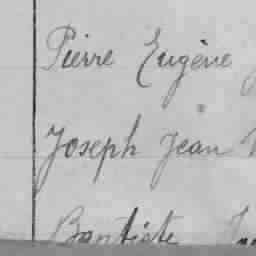 Pierre Eugène
Joseph Jean
Baptiste